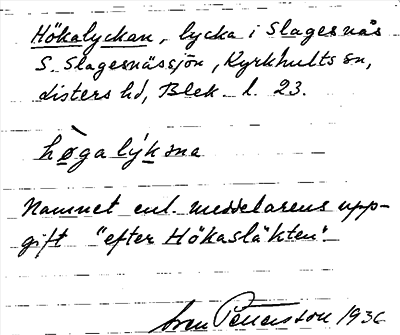 Hökalyckan, lycka i Slagesnäs
S. Slagesnässjön, Kyrkhults sn,
Listers hd, Blek. l. 23.
hø̀galýksna
Namnet enl. meddelarens upp-
gift "efter Hökasläkten".
Sven Pettersson 1936